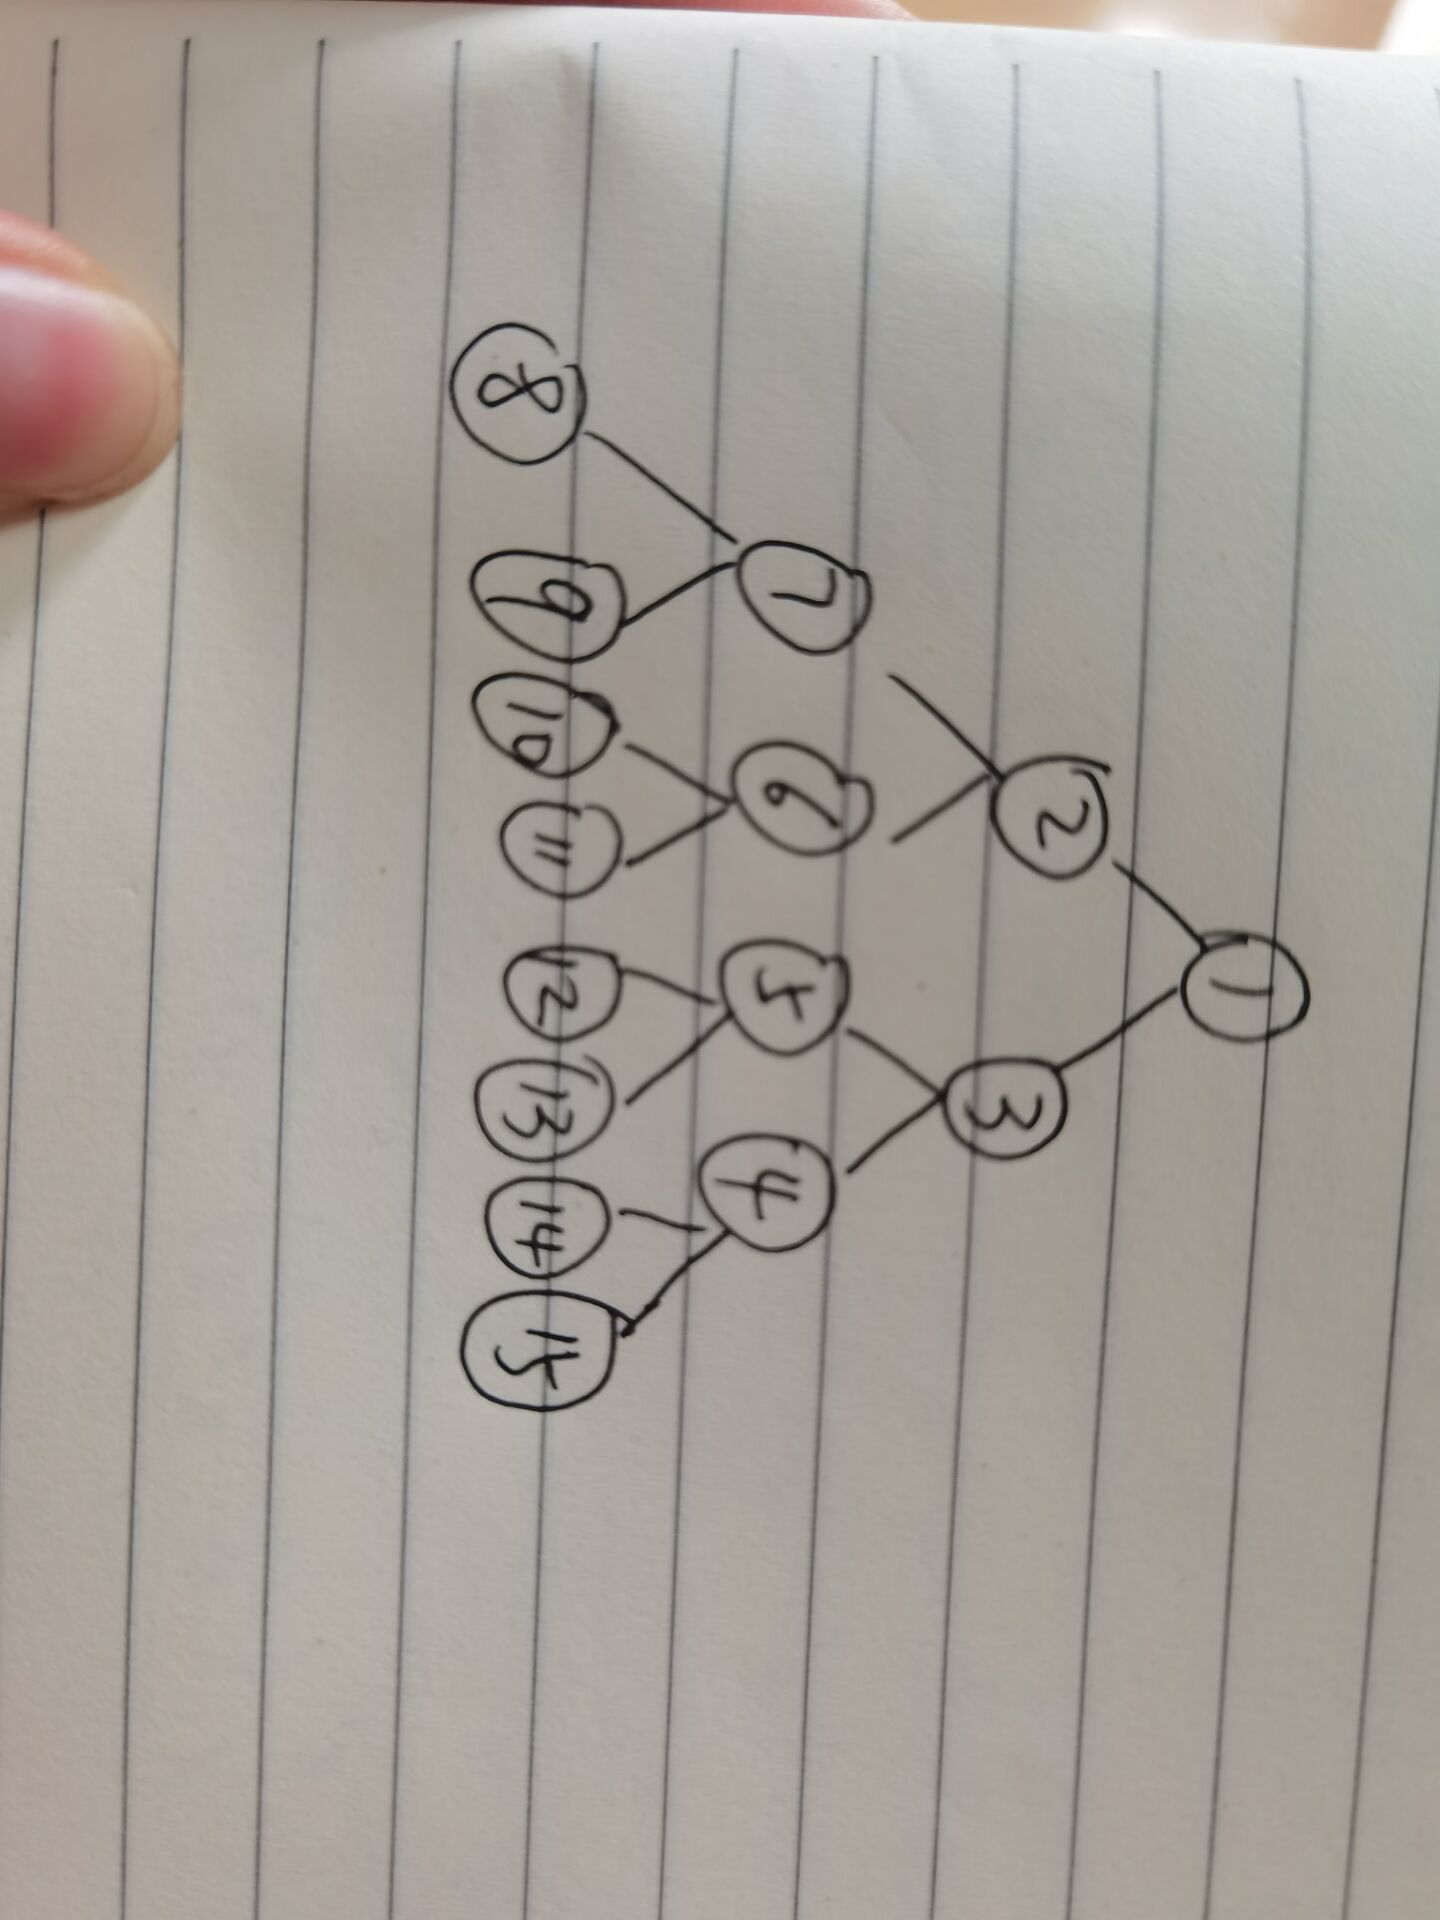 1
2 3
7 6 5 4
8 9 10 11 12 13 14 15